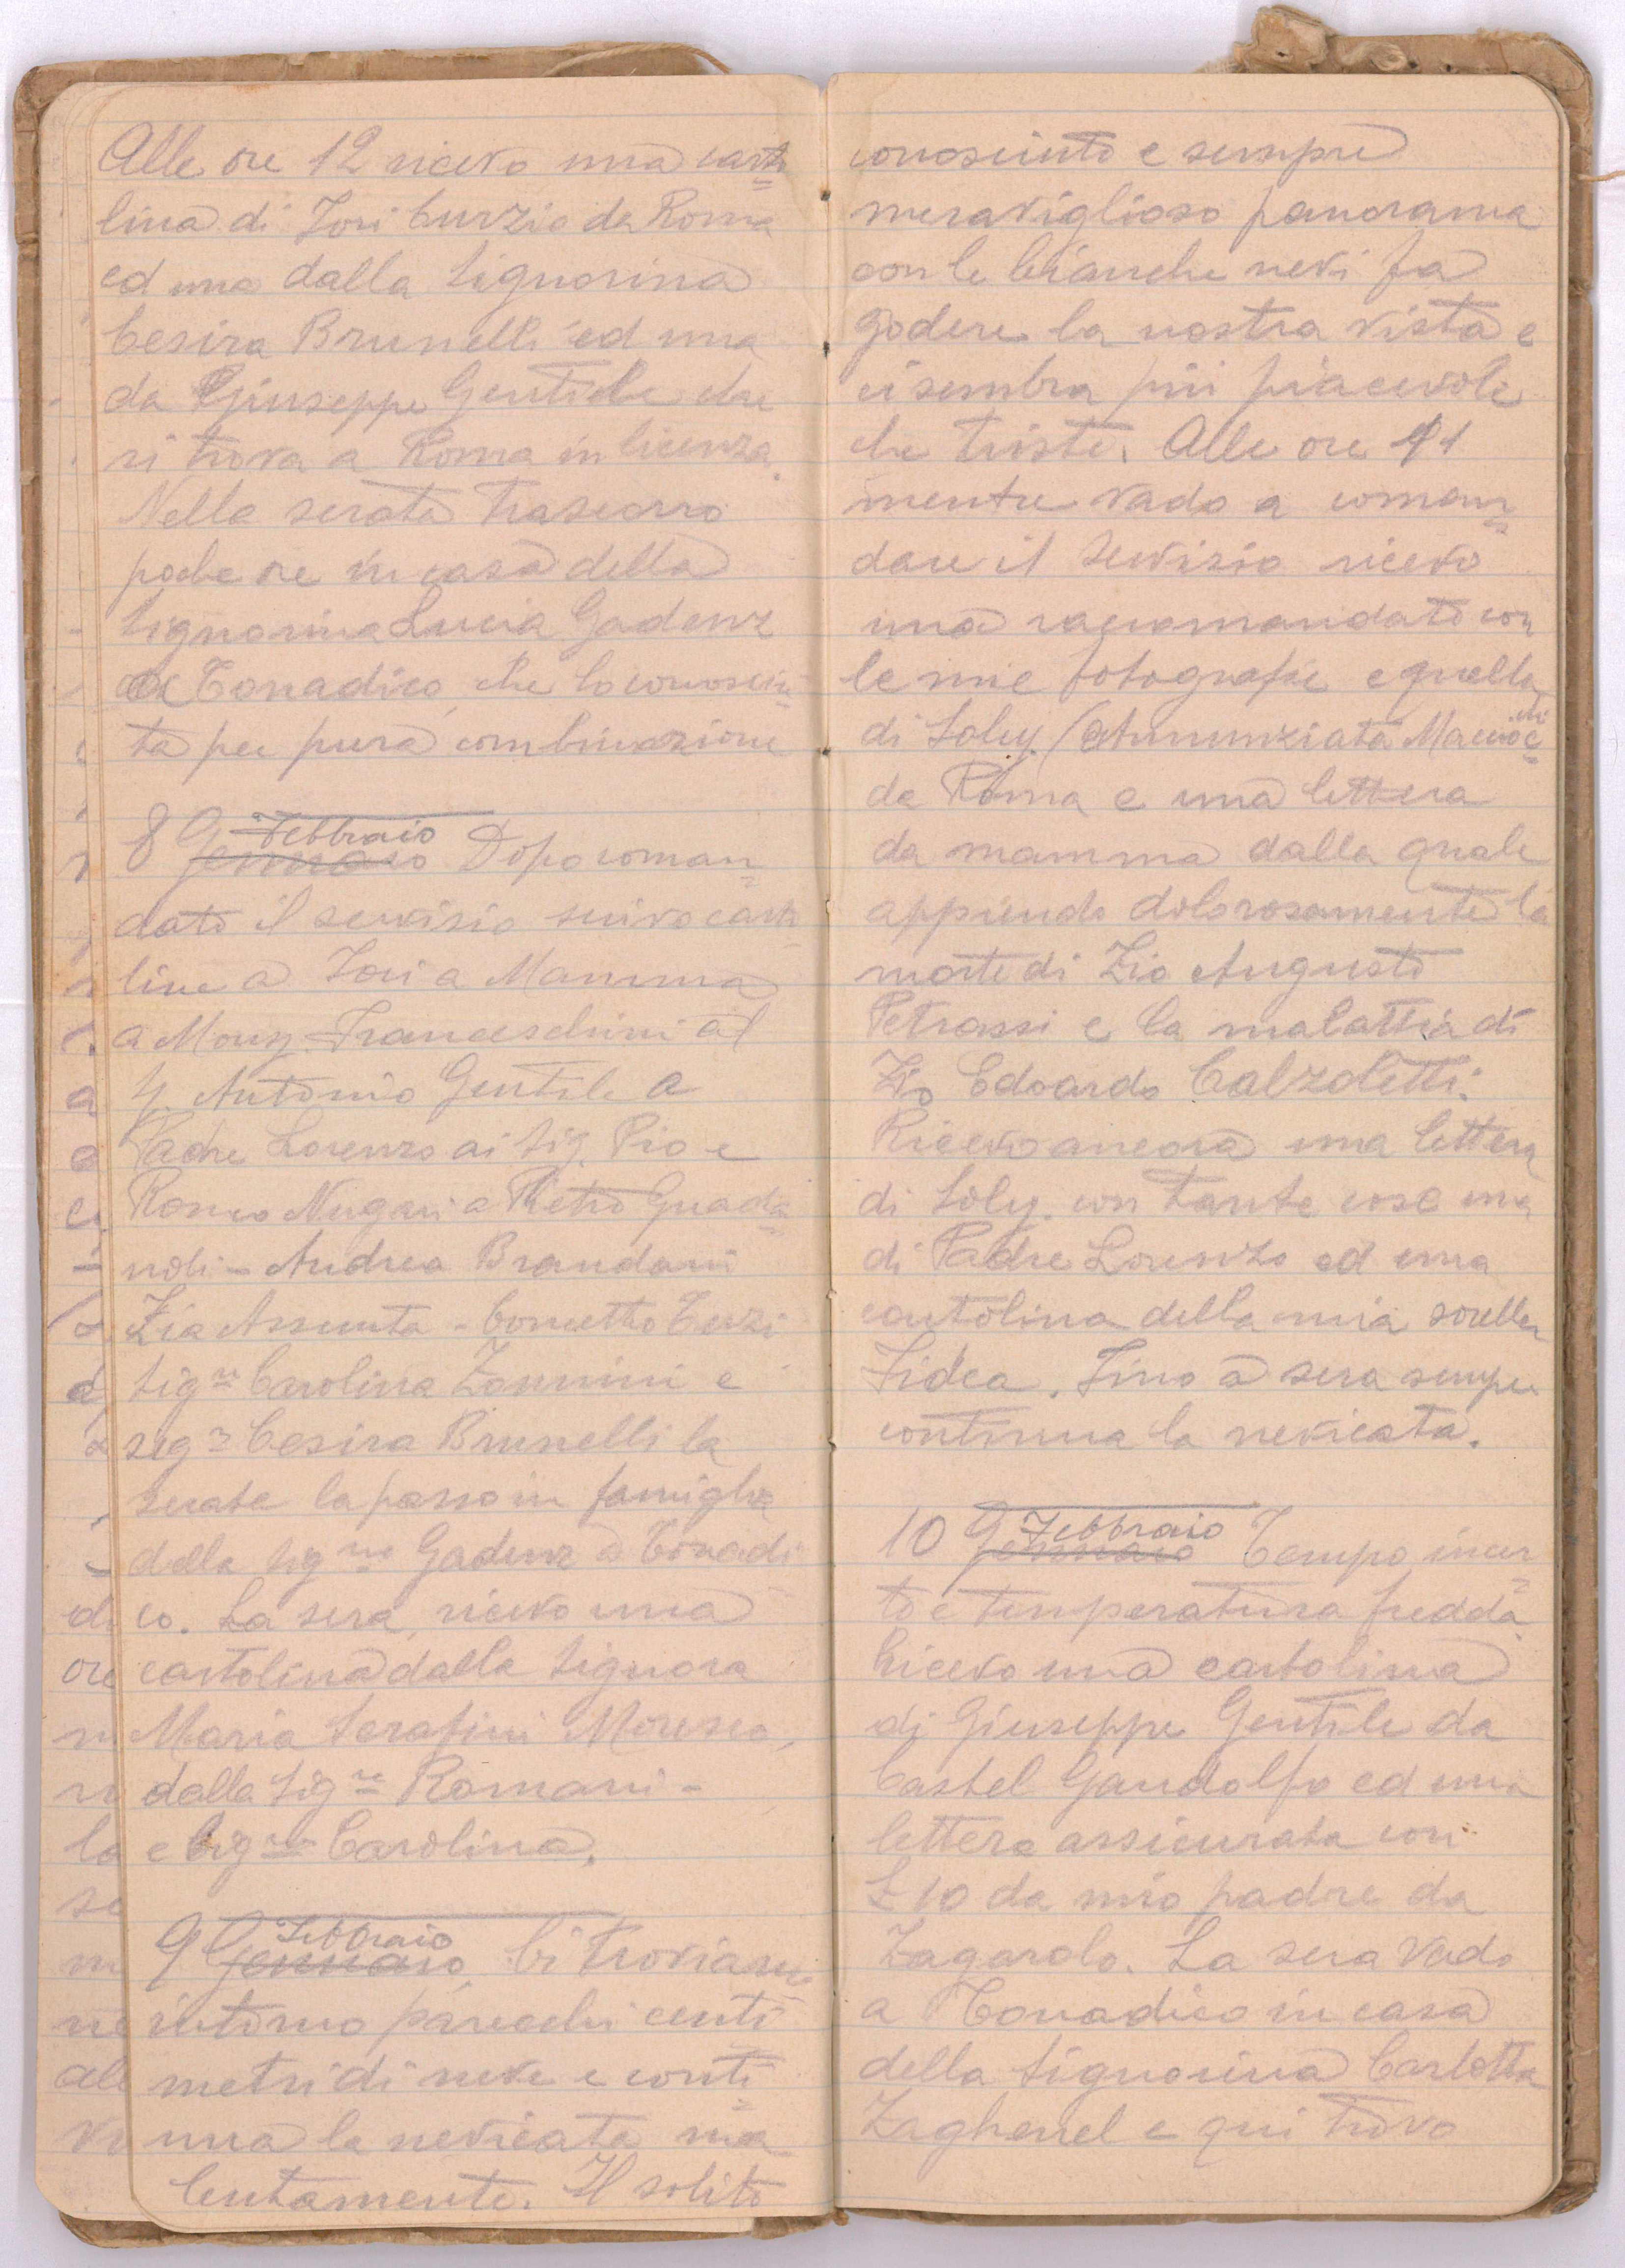 Alle ore 12 ricevo una carto
lina di Tori Curzio da Roma
ed una dalla Signorina
Cesira Brunelli ed una
da Giuseppe Gentile che
si trova a Roma in licenza.
Nella serata trascorro
poche ore in casa della
Signorina Lucia Gadenz
di Tonadico, che lo conosciu
ta per pura combinazione
8 Gennaio Febbraio Dopo coman
dato il servizio scrivo carto
line a Tori a Mamma
a Mons. Franceschini al
S. Antonio Gentile a
Padre Lorenzo ai Sig. Pio e
Romeo Nugari a Pietro Guada
noli - Andrea Brandani
Zia Assunta - Cornetto Terzi
Sig.ra Carolina Zannini e
sig.ra Cesira Brunelli la
serata la passo in famiglia
della Sig.na Gadenz a Tonadi
co. La sera, ricevo una
cartolina dalla Signora
Maria Serafini Moresco,
dalla Sig.re Romani -
e Sig.na Carolina.
9 Gennaio Febbraio Ci troviamo
intorno parecchi centi
metri di neve e conti
nua la nevicata ma
lentamente. Il solito
conosciuto e sempre
meraviglioso panorama
con le bianche nevi fa
godere la nostra vista e
ci sembra più piacevole
che triste. Alle ore 11
mentre vado a coman
dare il servizio ricevo
una raccomandata con
le mie fotografie e quella
di Soley. (Annunziata Macioc
chi
da Roma e una lettera
da mamma dalla quale
apprendo dolorosamente la
morte di Zio Augusto
Petrassi e la malattia di
Zio Edoardo Calzoletti.
Ricevo ancora una lettera
di Soley. con tante cose una
di Padre Lorenzo ed una
cartolina della mia sorella
Fidea. Fino a sera sempre
continua la nevicata.
10 Gennaio Febbraio Tempo incer
to e temperatura fredda.
Ricevo una cartolina
di Giuseppe Gentile da
Castel Gandolfo ed una
lettera assicurata con
£ 10 da mio padre da
Zagarolo. La sera vado
a Tonadico in casa
della Signorina Carlotta
Zagherrel e qui trovo